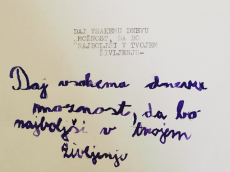 DAJ VSAKEMU DNEVU
MOŽNOST, DA BO
NAJBOLJŠI V TVOJEM
ŽIVLJENJU-
Daj vsakemu dnevu
možnost, da bo
najboljši v tvojem
življenju